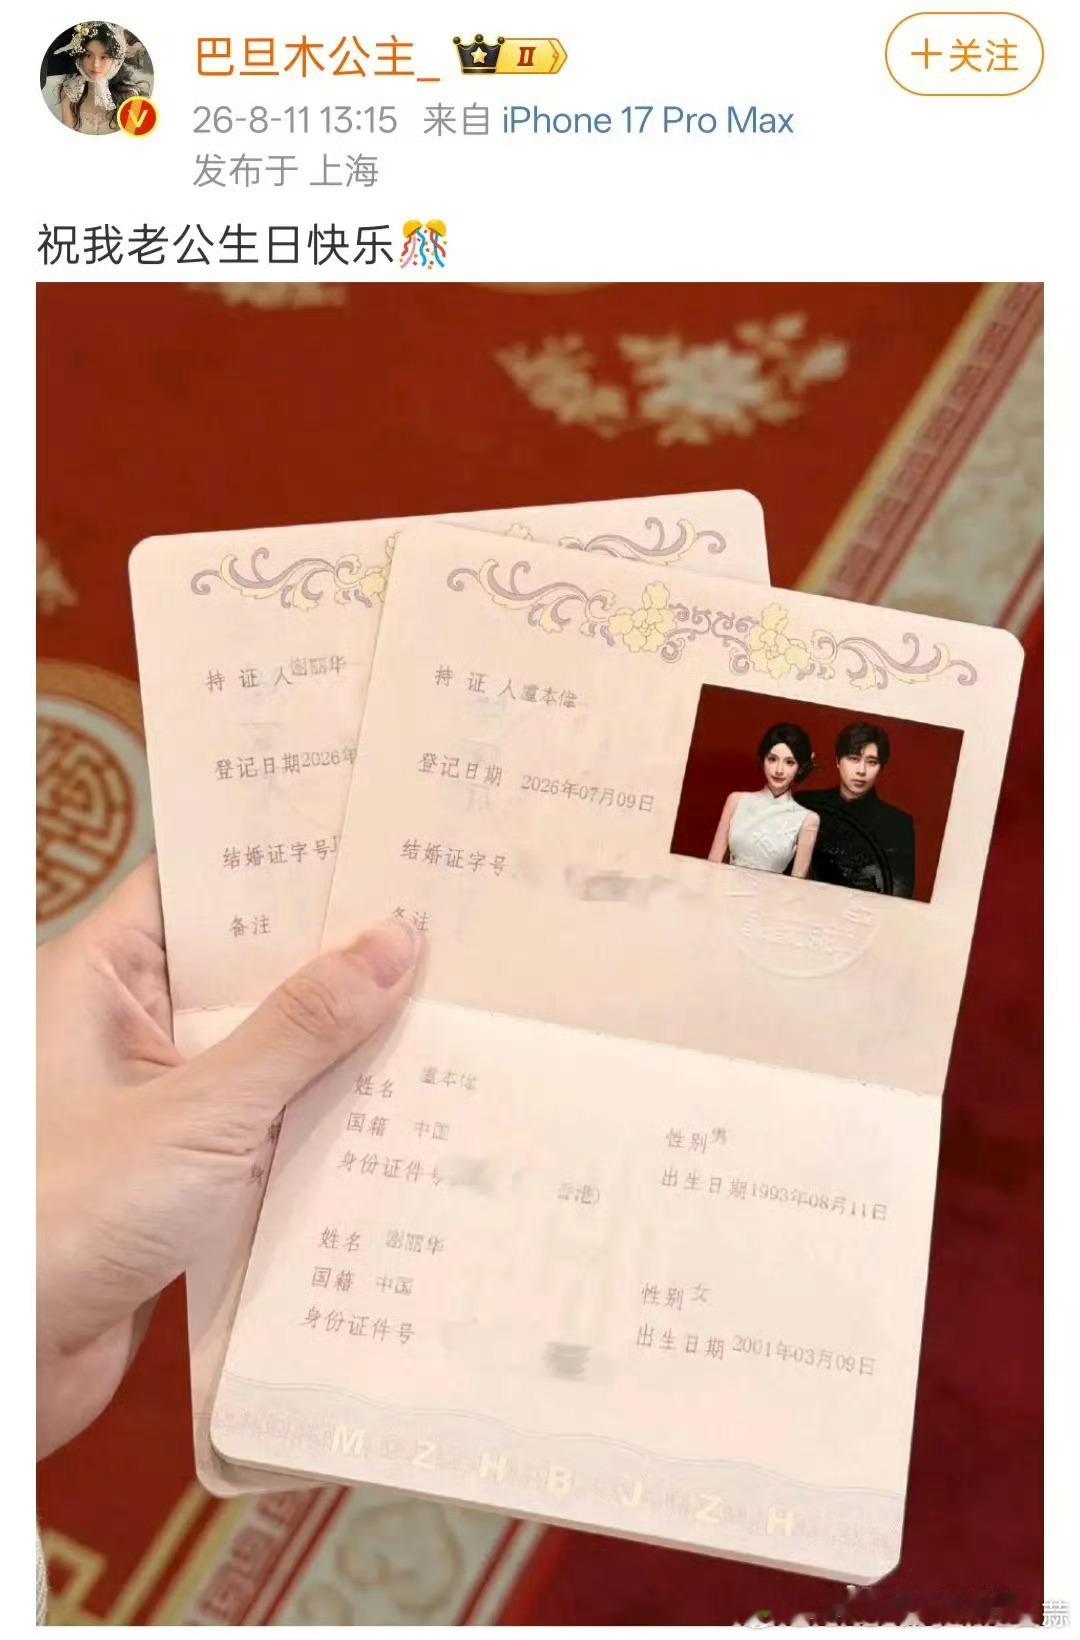 巴旦木公主_
II
+关注
26-8-11 13:15 来自 iPhone 17 Pro Max
发布于 上海
祝我老公生日快乐
持 证 人谢丽华
登记日期2026年
结婚证字号J
备注
持 证 人 卢本伟
登记日期 2026年07月09日
结婚证字号
备注
姓名 卢本伟
国籍 中国
性别 男
身份证件号
香港)
出生日期1993年08月11日
姓名 谢丽华
国籍 中国
性别 女
身份证件号
出生日期 2001年03月09日
M Z H B J Z H
蒜